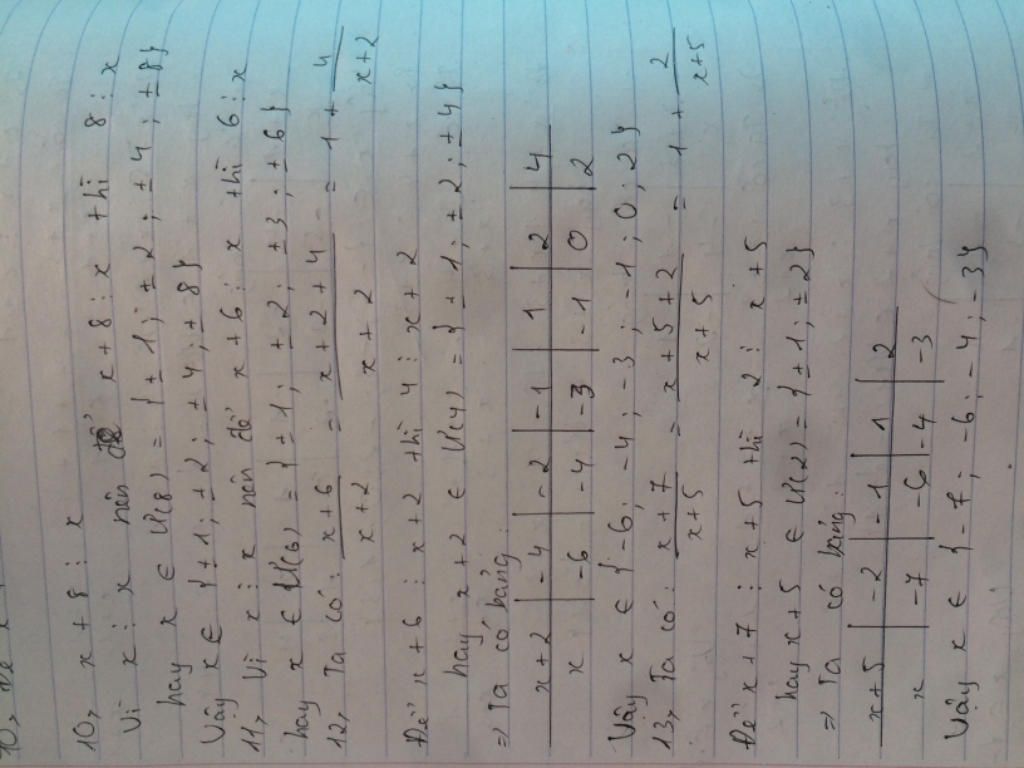 10, x + 8 ⋮ x
Vì x ⋮ x nên để x + 8 ⋮ x thì 8 ⋮ x
hay x ∈ Ư(8) = {± 1; ± 2; ± 4; ± 8}
Vậy x ∈ {± 1; ± 2; ± 4; ± 8}
11, Vì x ⋮ x nên để x + 6 ⋮ x thì 6 ⋮ x
hay x ∈ Ư(6) = {± 1; ± 2; ± 3; ± 6}
12, Ta có: x + 6 / x + 2 = x + 2 + 4 / x + 2 = 1 + 4 / x + 2
Để x + 6 ⋮ x + 2 thì 4 ⋮ x + 2
hay x + 2 ∈ Ư(4) = {± 1; ± 2; ± 4}
⇒ Ta có bảng:
x + 2 | -4 | -2 | -1 | 1 | 2 | 4
x | -6 | -4 | -3 | -1 | 0 | 2
Vậy x ∈ {-6; -4; -3; -1; 0; 2}
13, Ta có: x + 7 / x + 5 = x + 5 + 2 / x + 5 = 1 + 2 / x + 5
Để x + 7 ⋮ x + 5 thì 2 ⋮ x + 5
hay x + 5 ∈ Ư(2) = {± 1; ± 2}
⇒ Ta có bảng:
x + 5 | -2 | -1 | 1 | 2
x | -7 | -6 | -4 | -3
Vậy x ∈ {-7; -6; -4; -3}